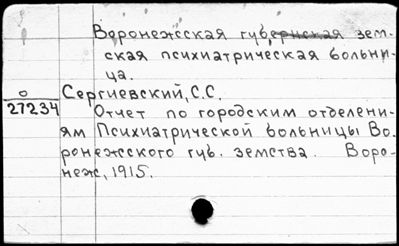 Воронежсская губернская зем-
ская психиатрическая больни-
ца.
О Сергиевский, С.С.
27234 Отчет по городским отделени-
ям Психиатрической больницы Во-
ронежсского губ. земства. Воро-
неж, 1915.